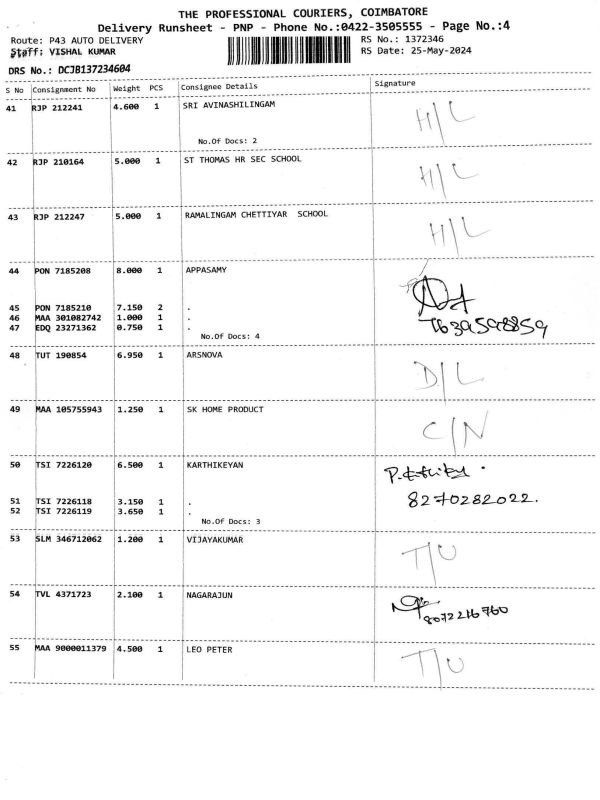 THE PROFESSIONAL COURIERS, COIMBATORE
Delivery Runsheet - PNP - Phone No.:0422-3505555 - Page No.:4
Route: P43 AUTO DELIVERY RS No.: 1372346
Staff: VISHAL KUMAR RS Date: 25-May-2024
DRS No.: DCJB137234604
S No Consignment No Weight PCS Consignee Details Signature
41 RJP 212241 4.600 1 SRI AVINASHILINGAM H/L
No.Of Docs: 2
42 RJP 210164 5.000 1 ST THOMAS HR SEC SCHOOL H/L
43 RJP 212247 5.000 1 RAMALINGAM CHETTIYAR SCHOOL H/L
44 PON 7185208 8.000 1 APPASAMY
45 PON 7185210 7.150 2 .
46 MAA 301082742 1.000 1 . 7639598859
47 EDQ 23271362 0.750 1 .
No.Of Docs: 4
48 TUT 190854 6.950 1 ARSNOVA D/L
49 MAA 105755943 1.250 1 SK HOME PRODUCT C/N
50 TSI 7226120 6.500 1 KARTHIKEYAN
51 TSI 7226118 3.150 1 . 8270282022.
52 TSI 7226119 3.650 1 .
No.Of Docs: 3
53 SLM 346712062 1.200 1 VIJAYAKUMAR T/U
54 TVL 4371723 2.100 1 NAGARAJUN
8072216760
55 MAA 9000011379 4.500 1 LEO PETER T/U